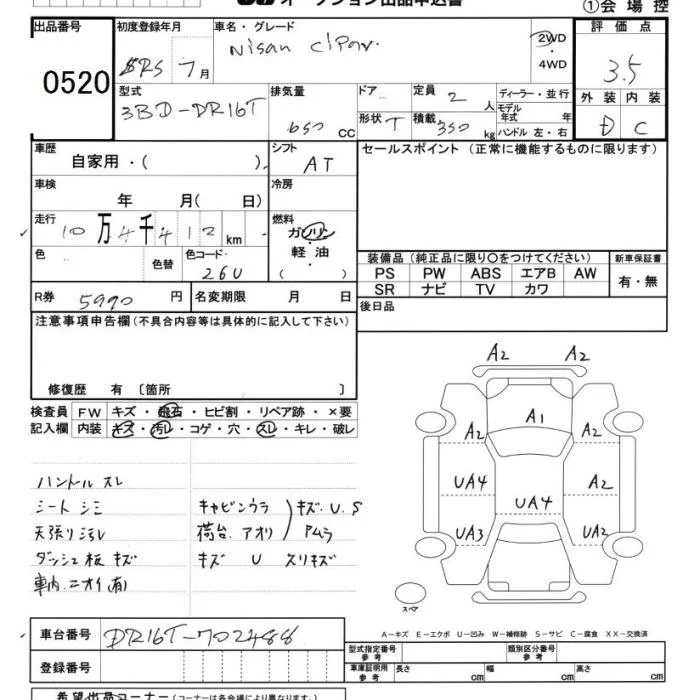 オークション出品申込書
①会場控
出品番号 0520
初度登録年月 7月
車名・グレード Nisan cipar.
2WD
・
4WD
評価点 3.5
外装 D 内装 C
型式 3BD-DR16T
排気量 650 cc
ドア
形状 T
定員 2 人
積載 350 kg
ディーラー・並行
モデル年式 年
ハンドル 左・右
車歴 自家用・( )
シフト AT
セールスポイント (正常に機能するものに限ります)
車検 年 月( 日)
冷房
走行 10万4千412 km
燃料 ガソリン
軽・油
( )
色
色替
色コード 26U
装備品 (純正品に限り〇をつけてください)
新車保証書
有・無
PS PW ABS エアB AW
SR ナビ TV カワ
R券 5990 円
名変期限 月 日
後日品
注意事項申告欄 (不具合内容等は具体的に記入して下さい)
修復歴 有 〔箇所 〕
検査員 FW キズ・飛石・ヒビ割・リペア跡・×要
記入欄 内装 キズ・汚レ・コゲ・穴・スレ・キレ・破レ
ハンドル スレ
シート シミ
天張リ ヨゴレ
ダッシュ板 キズ
車内 ニオイ(有)
キャビンウラ キズ U. S
荷台 アオリ アムラ
キズ U スリキズ
A2 A2
A2 A1 A2
UA4 UA4 A2
UA3 UA2
スペア
A-キズ E-エクボ U-凹み W-補修跡 S-サビ C-腐食 XX-交換済
車台番号 DR16T-702488
登録番号
型式指定番号 参考
類別区分番号 参考
車庫証明用 参考 長さ cm 幅 cm 高さ cm
希望出品コーナー (コーナーは各会場により異なります)